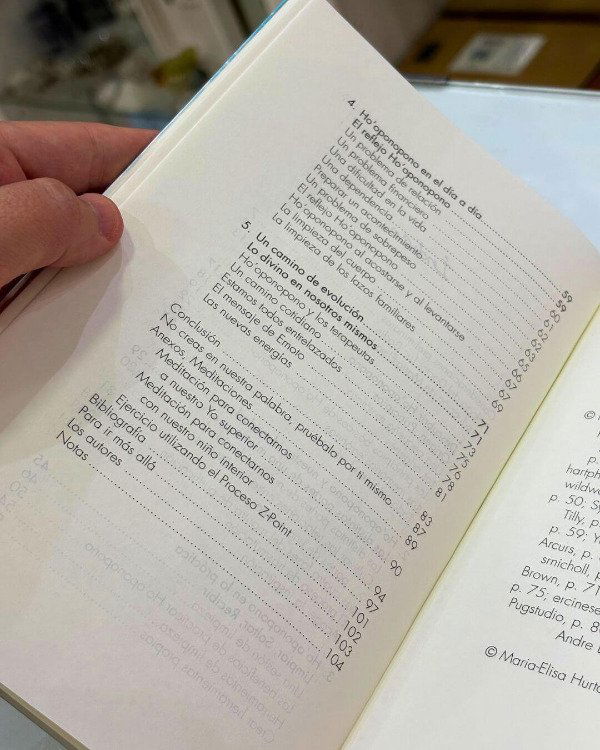 4. Ho'oponopono en el día a día 59
El reflejo Ho'oponopono 59
Un problema de relación
Un problema financiero
Una dificultad en la vida
Una dependencia
Preparar un acontecimiento
Un problema de sobrepeso
El reflejo Ho'oponopono
Ho'oponopono al acostarse y al levantarse
La limpieza del cuerpo 67
La limpieza de los lazos familiares 69
5. Un camino de evolución 71
Lo divino en nosotros mismos 71
Ho'oponopono y los terapeutas 73
Un camino cotidiano 75
Estamos todos entrelazados 76
El mensaje de Emoto 78
Las nuevas energías 81
Conclusión 83
No creas en nuestra palabra, pruébalo por ti mismo 87
Anexos, Meditaciones 89
Meditación para conectarnos
a nuestro Yo superior 90
Meditación para conectarnos
con nuestro niño interior 94
Ejercicio utilizando el Proceso Z-Point 97
Bibliografía 101
Para ir más allá 102
Los autores 103
Notas 104
©
p.
hartph
wildwo
p. 50; S
Tilly, p.
p. 59: Y
Arcurs, p.
smicholl, p
Brown, p. 71
p. 75, ercinese
Pugstudio, p. 8
Andre
© Maria-Elisa Hurt